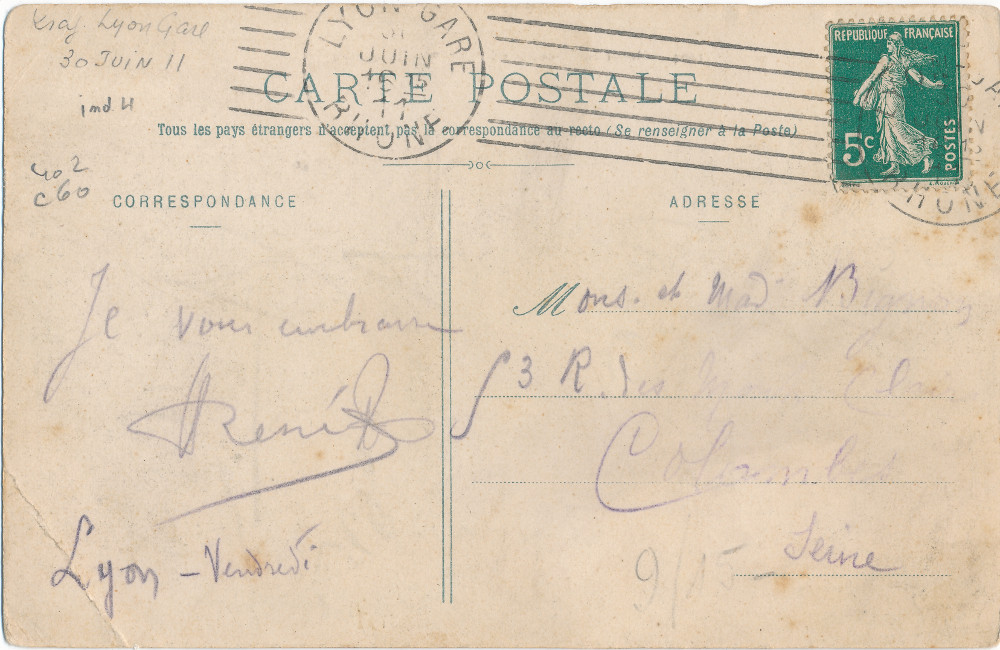 Krag Lyon Gare
30 JUIN 11
ind 4
402
C60
LYON GARE
JUIN
11
RHONE
CARTE POSTALE
Tous les pays étrangers n'acceptent pas la correspondance au recto (Se renseigner à la Poste)
RÉPUBLIQUE FRANÇAISE
5c
POSTES
RHONE
CORRESPONDANCE
Je vous embrasse
René
Lyon - Vendredi
ADRESSE
Mons. et Mad
53 R. des
Colombes
Seine
9/15